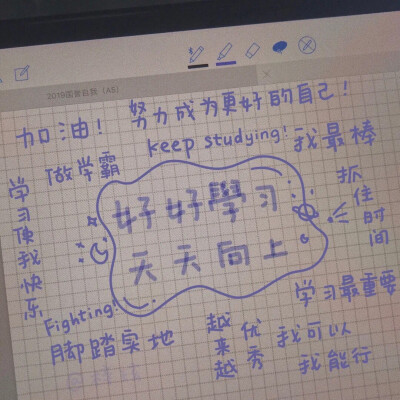 2019国考自我 (A5)
加油!
努力成为更好的自己!
keep studying!
我最棒
做学霸
学习使我快乐
好好學习
天天向上
抓住时间
学习最重要
Fighting!
脚踏实地
越来越优秀
我可以
我能行